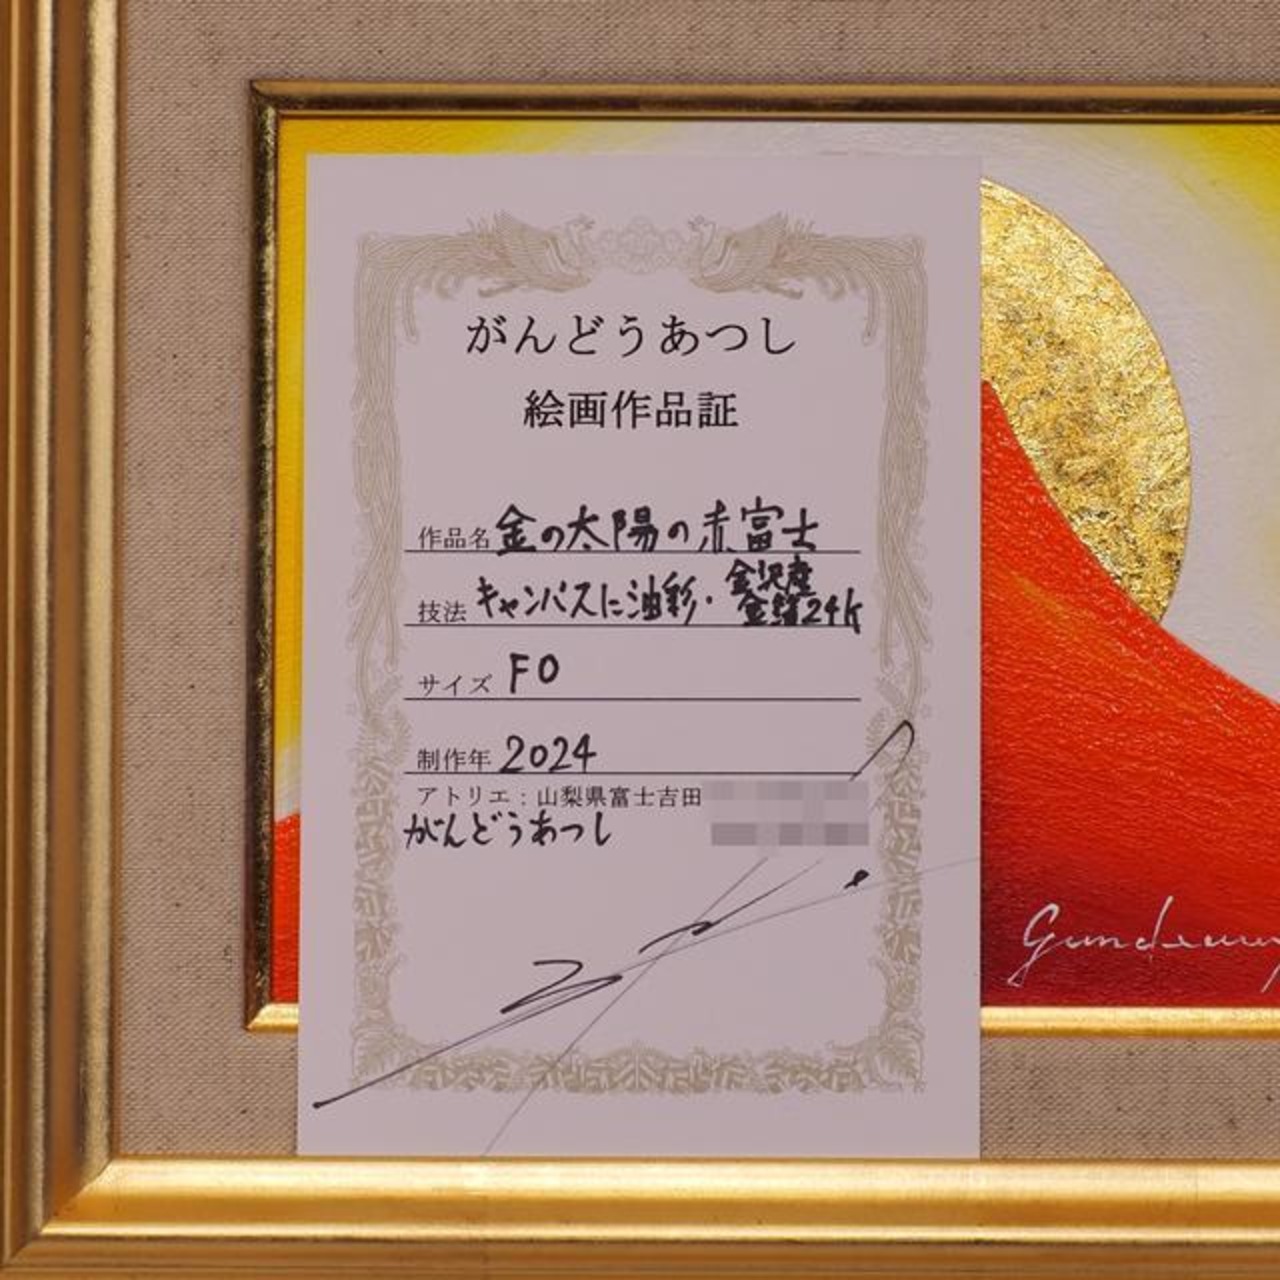 がんどうあつし
絵画作品証
作品名 金の太陽の赤富士
技法 キャンバスに油彩・金沢産
金箔24k
サイズ F0
制作年 2024
アトリエ：山梨県富士吉田
がんどうあつし